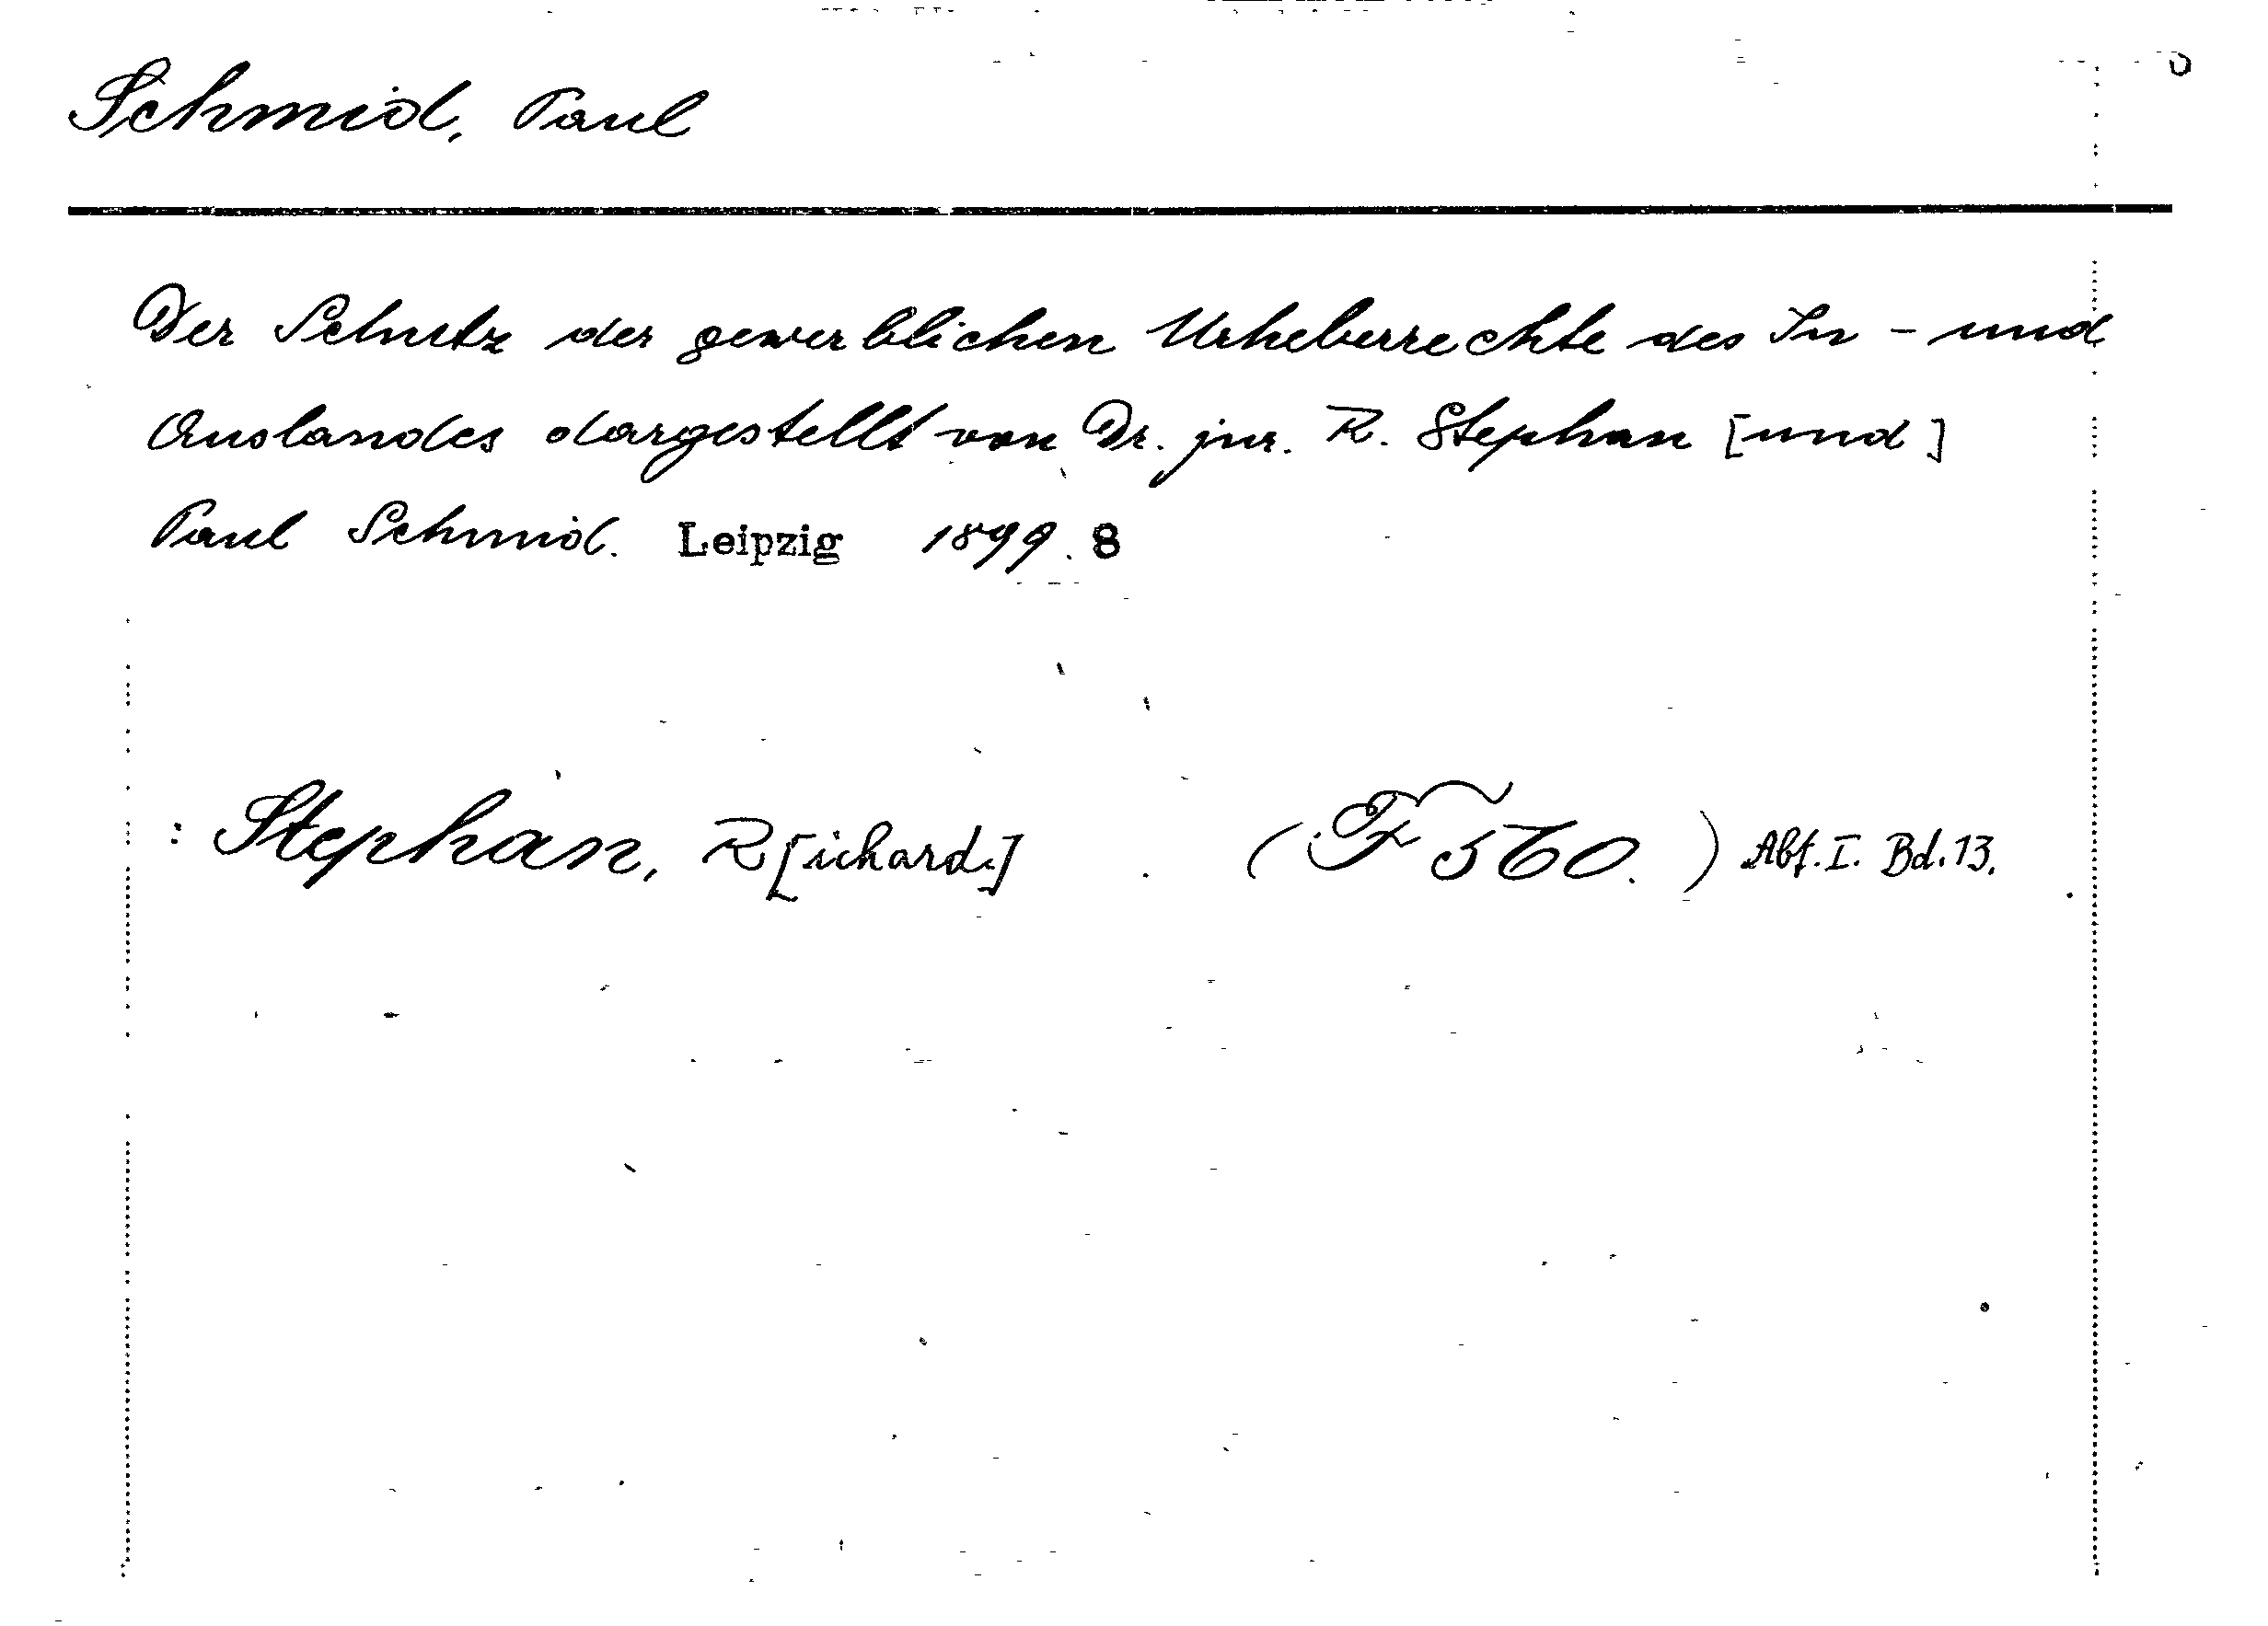 Schmid, Paul
Der Schutz der gewerblichen Urheberrechte des In - und
Auslandes dargestellt von Dr. jur. R. Stephan [und]
Paul Schmid. Leipzig 1899. 8
: Stephan, R[ichard.] (F 560.) Abt. I. Bd. 13.